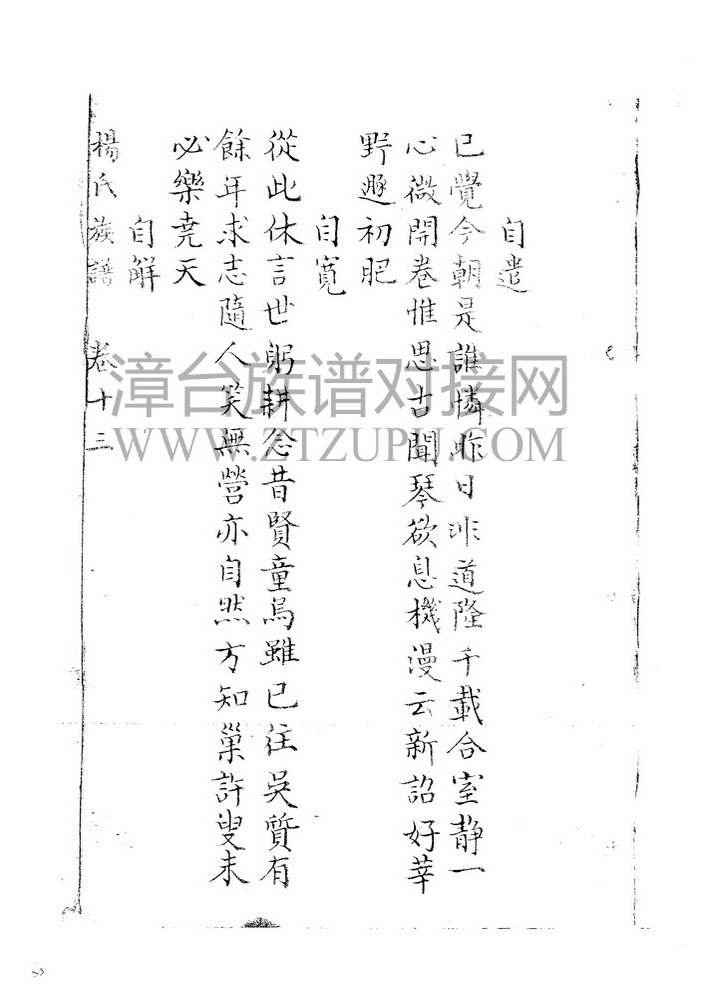 自遣
已覺今朝是誰憐昨日非道隆千載合室靜一
心微開卷惟思古聞琴欲息機漫云新詔好莘
野遯初肥
自寬
從此休言世躬耕念昔賢童烏雖已往吳質有
餘年求志隨人笑無營亦自然方知巢許叟未
必樂堯天
自解
楊氏族譜 卷十三
漳台族谱对接网
WWW.ZTZUPU.COM